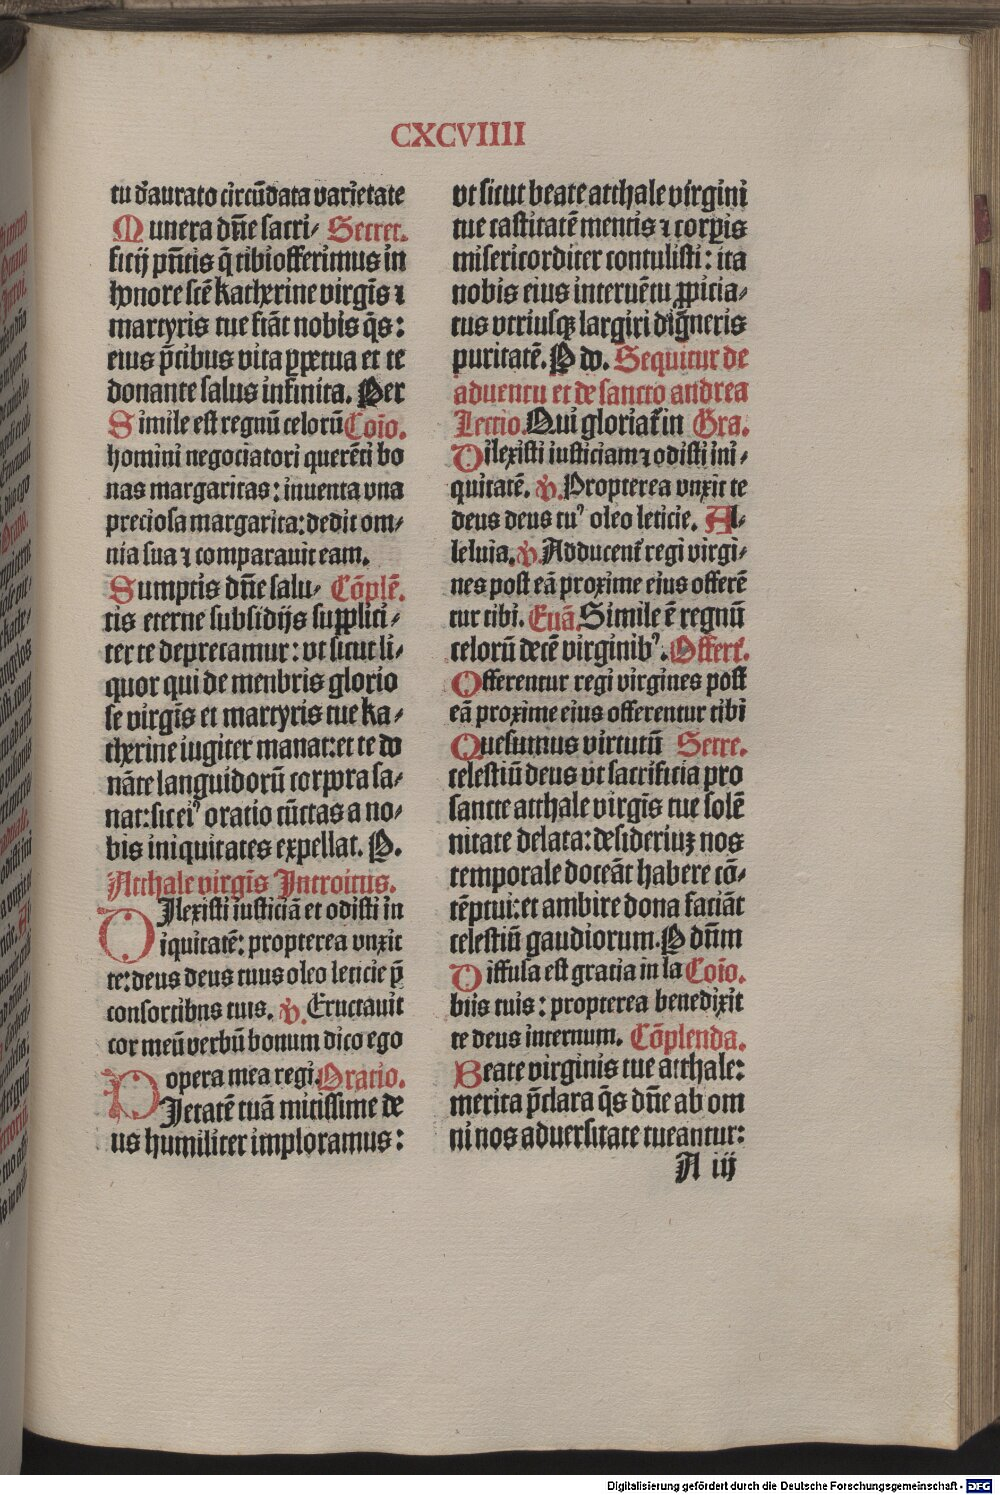 CXCVIIII
tu d̄aurato circūdata varietate
Munera dn̄e sacri⸗ Secret.
ficij pn̄tis q̄ tibi offerimus in
honore scē katherine virgīs ⁊
martyris tue fiāt nobis q̄s:
eius p̄cibus vita ꝑpetua et te
donante salus infinita. Per
Simile est regnū celorū Coīo.
homini negociatori querēti bo
nas margaritas: inuenta vna
preciosa margarita: dedit om⸗
nia sua ⁊ comparauit eam.
Sumptis dn̄e salu⸗ Cōplē.
tis eterne subsidijs suppliti⸗
ter te deprecamur: vt sicut li⸗
quor qui de menbris glorio
se virgīs et martyris tue ka⸗
therine iugiter manat: et te do
nāte languidorū corpora sa⸗
nat: sic eiꝰ oratio cūctas a no⸗
bis iniquitates expellat. P.
Atthale virgīs Introitus.
DIlexisti iusticiā et odisti in
iquitatē: propterea vnxit
te: deus deus tuus oleo leticie p̄
consortibus tuis. ℣. Eructauit
cor meū verbū bonum dico ego
opera mea regi. Oratio.
PIetatē tuā mitissime de
us humiliter imploramus:
vt sicut beate atthale virgini
tue castitatē mentis ⁊ corpis
misericorditer contulisti: ita
nobis eius interuētu ꝓpicia⸗
tus vtriusqꝫ largiri dīgneris
puritatē. P do. Sequitur de
aduentu et de sancto andrea
Lectio. Qui gloriat̄ in Gra.
Dilexisti iusticiam ⁊ odisti ini⸗
quitatē. ℣. Propterea vnxit te
deus deus tuꝰ oleo leticie. Al⸗
leluia. ℣. Adducent̄ regi virgi⸗
nes post eā proxime eius offerē
tur tibi. Euā. Simile ē regnū
celorū decē virginibꝰ. Offert̄.
Offerentur regi virgines post
eā proxime eius offerentur tibi
Quesumus virtutū Secre.
celestiū deus vt sacrificia pro
sancte atthale virgīs tue solē
nitate delata: desideriuꝫ nos
temporale doceāt habere cō⸗
tēptui: et ambire dona faciāt
celestiū gaudiorum. P dn̄m
Diffusa est gratia in la Coīo.
biis tuis: propterea benedixit
te deus internum. Cōplenda.
Beate virginis tue atthale:
merita p̄clara q̄s dn̄e ab om
ni nos aduersitate tueantur:
A iij
Digitalisierung gefördert durch die Deutsche Forschungsgemeinschaft - DFG